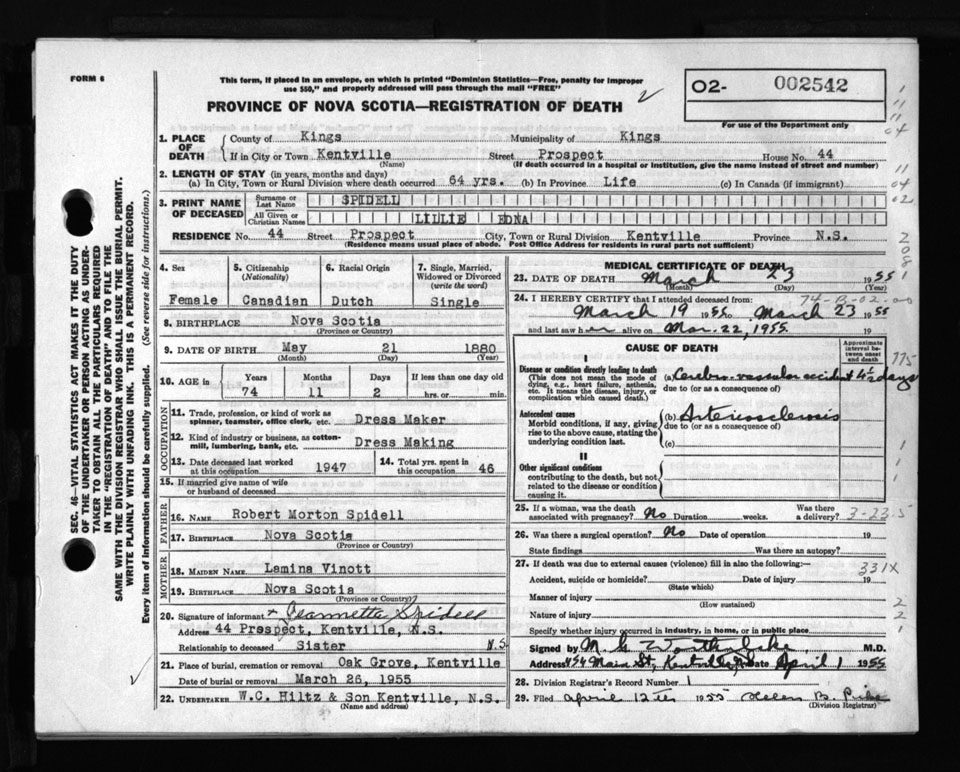 FORM 6
This form, if placed in an envelope, on which is printed "Dominion Statistics—Free, penalty for improper
use $50," and properly addressed will pass through the mail "FREE"
PROVINCE OF NOVA SCOTIA—REGISTRATION OF DEATH
O2- 002542
For use of the Department only
1. PLACE OF DEATH County of Kings Municipality of Kings
If in City or Town Kentville (Name) Street Prospect House No. 44
(If death occurred in a hospital or institution, give the name instead of street and number)
2. LENGTH OF STAY (in years, months and days)
(a) In City, Town or Rural Division where death occurred 64 yrs. (b) In Province Life (c) In Canada (if immigrant)
3. PRINT NAME OF DECEASED Surname or Last Name SPIDELL
All Given or Christian Names LILLIE EDNA
RESIDENCE No. 44 Street Prospect City, Town or Rural Division Kentville Province N.S.
(Residence means usual place of abode. Post Office Address for residents in rural parts not sufficient)
4. Sex Female
5. Citizenship (Nationality) Canadian
6. Racial Origin Dutch
7. Single, Married, Widowed or Divorced (write the word) Single
8. BIRTHPLACE Nova Scotia
(Province or Country)
9. DATE OF BIRTH May 21 1880
(Month) (Day) (Year)
10. AGE in Years Months Days If less than one day old
74 11 2 hrs. or min.
OCCUPATION
11. Trade, profession, or kind of work as spinner, teamster, office clerk, etc. Dress Maker
12. Kind of industry or business, as cotton-mill, lumbering, bank, etc. Dress Making
13. Date deceased last worked at this occupation 1947
14. Total yrs. spent in this occupation 46
15. If married give name of wife or husband of deceased
FATHER
16. NAME Robert Morton Spidell
17. BIRTHPLACE Nova Scotia
(Province or Country)
MOTHER
18. MAIDEN NAME Lamina Vinott
19. BIRTHPLACE Nova Scotia
(Province or Country)
20. Signature of informant x Jeannetta Spidell
Address 44 Prospect, Kentville, N.S.
Relationship to deceased Sister N.S
21. Place of burial, cremation or removal Oak Grove, Kentville
Date of burial or removal March 26, 1955
22. UNDERTAKER W.C. Hiltz & Son Kentville, N.S.
(Name and address)
MEDICAL CERTIFICATE OF DEATH
23. DATE OF DEATH March 23 1955
(Month) (Day) (Year)
74-B-02-00
24. I HEREBY CERTIFY that I attended deceased from:
March 19 1955 to March 23 1955
and last saw her alive on Mar. 22, 1955. 19
CAUSE OF DEATH
Approximate interval between onset and death
I
Disease or condition directly leading to death
(This does not mean the mode of dying, e.g., heart failure, asthenia, etc. It means the disease, injury, or complication which caused death.)
(a) Cerebro-vascular accident 4½ days
due to (or as a consequence of)
Antecedent causes
Morbid conditions, if any, giving rise to the above cause, stating the underlying condition last.
(b) Arteriosclerosis
due to (or as a consequence of)
(c)
II
Other significant conditions
contributing to the death, but not related to the disease or condition causing it.
25. If a woman, was the death associated with pregnancy? No Duration weeks. Was there a delivery? 3-23.5
26. Was there a surgical operation? No Date of operation 19
State findings Was there an autopsy?
27. If death was due to external causes (violence) fill in also the following:—
331X
Accident, suicide or homicide? Date of injury 19
(State which)
Manner of injury
(How sustained)
Nature of injury
Specify whether injury occurred in industry, in home, or in public place
Signed by M.D.
Address Main St, Kentville Date April 1 1955
28. Division Registrar's Record Number 1
29. Filed April 12th 1955 Helen B.
(Division Registrar)
SEC. 46—VITAL STATISTICS ACT MAKES IT THE DUTY
OF THE UNDERTAKER OR PERSON ACTING AS UNDER-
TAKER TO OBTAIN ALL THE PARTICULARS REQUIRED
IN THE "REGISTRATION OF DEATH" AND TO FILE THE
SAME WITH THE DIVISION REGISTRAR WHO SHALL ISSUE THE BURIAL PERMIT.
WRITE PLAINLY WITH UNFADING INK. THIS IS A PERMANENT RECORD.
Every item of Information should be carefully supplied. (See reverse side for instructions.)